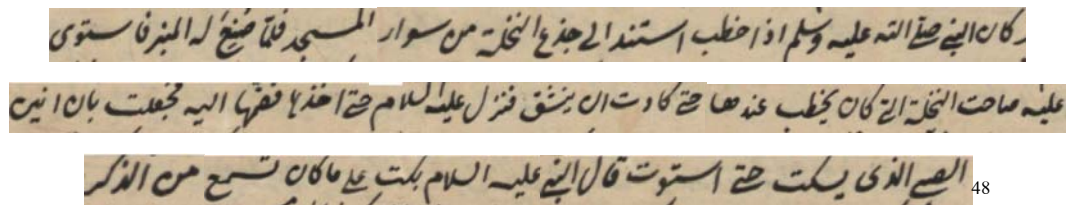 كان النبي صلى الله عليه وسلم اذا خطب استند الى جذع النخلة من سوار المسجد فلما صنع له المنبر فاستوى
عليه صاحت النخلة التي كان يخطب عندها حتى كادت ان ينشق فنزل عليه السلام حتى اخذها فضمها اليه فجعلت بان انين
الصبي الذى يسكت حتى استوت قال النبي عليه السلام بكت على ما كان تسمع من الذكر
48